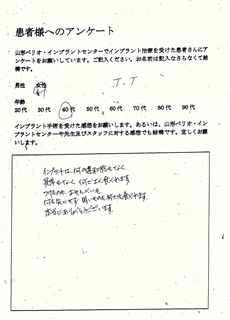 患者様へのアンケート
山形ペリオ・インプラントセンターでインプラント治療を受けた患者さんにア
ンケートをお願いしています。ご記入ください。お名前は記入なさらなくて結
構です。
男性 女性
T.T
年齢
20代 30代 40代 50代 60代 70代 80代 90代
インプラント手術を受けた感想をお願いします。あるいは、山形ペリオ・イン
プラントセンターや先生及びスタッフに対する感想でも結構です。宜しくお願
いします。
インプラントは、何の違和感もなく
異常もなく、何でもよく食べれます
つけもの、おせんべい、も
何も気にせず 固いものも何でも食べれます
本当にありがとうございます